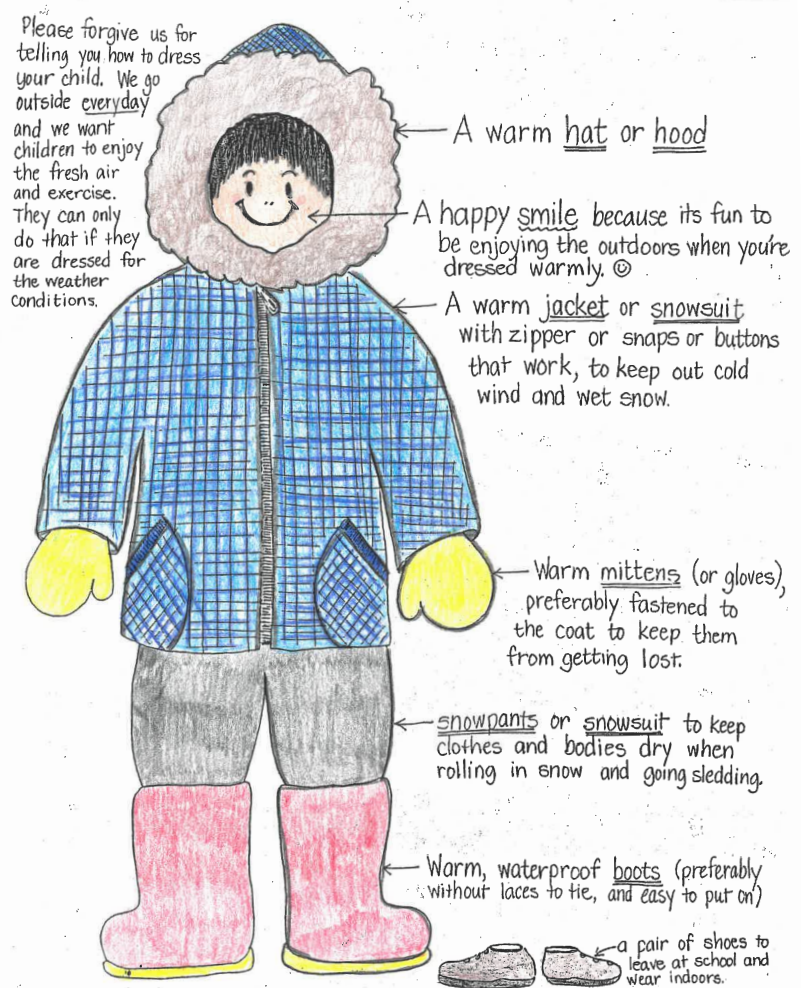 Please forgive us for
telling you how to dress
your child. We go
outside everyday
and we want
children to enjoy
the fresh air
and exercise.
They can only
do that if they
are dressed for
the weather
conditions.
A warm hat or hood
A happy smile because its fun to
be enjoying the outdoors when you're
dressed warmly. ☺
A warm jacket or snowsuit
with zipper or snaps or buttons
that work, to keep out cold
wind and wet snow.
Warm mittens (or gloves),
preferably fastened to
the coat to keep them
from getting lost.
snowpants or snowsuit to keep
clothes and bodies dry when
rolling in snow and going sledding.
Warm, waterproof boots (preferably
without laces to tie, and easy to put on)
a pair of shoes to
leave at school and
wear indoors.